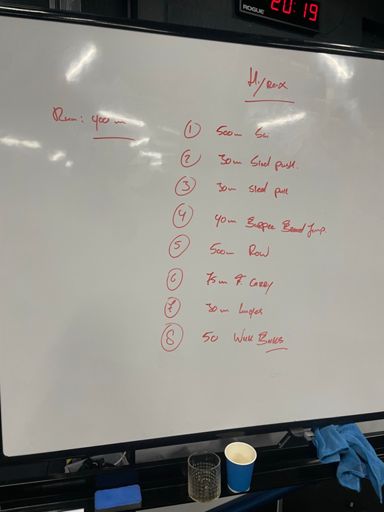 ROGUE 20:19
Hyrox
Run: 400m
1 500m Ski
2 30m Sled push.
3 30m sled pull
4 40m Burpee Broad Jump.
5 500m Row
6 75m F. Carry
7 30m Lunges
8 50 Wall Balls